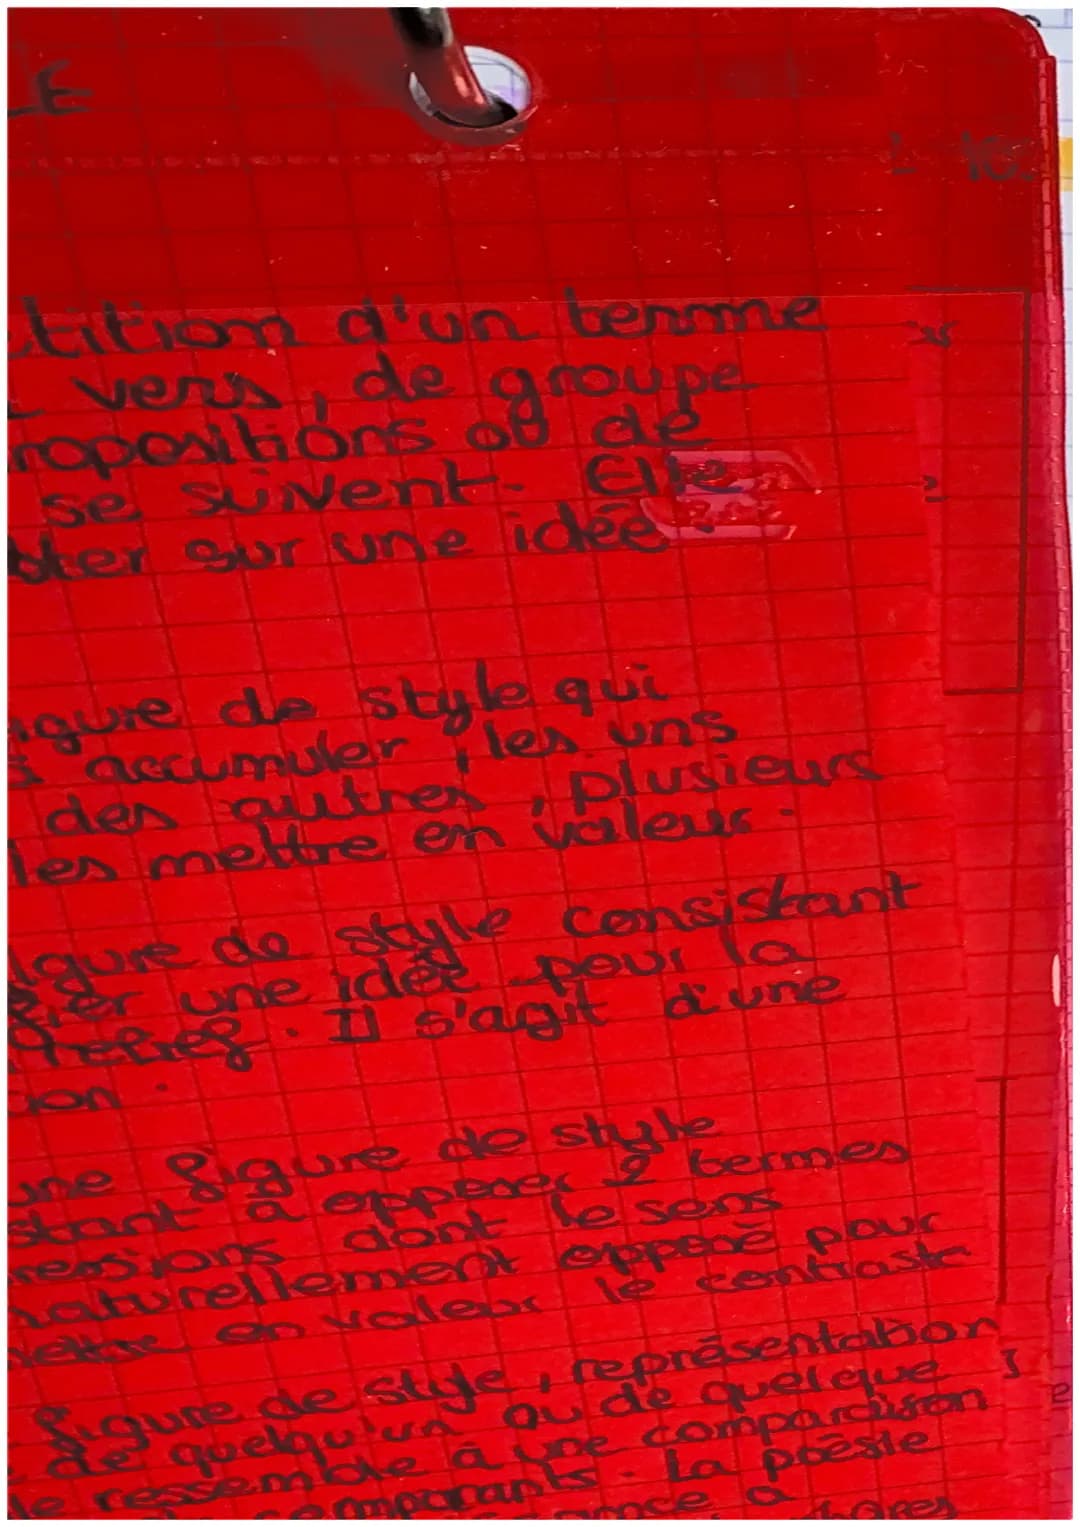 LE
tition d'un terme
vers, de groupe
ropositions ou de
se suivent. Elle
ster sur une idée.
igure de style qui
accumuler, les uns
des autres, plusieurs
les mettre en valeur.
igure de style consistant
une idée pour la
relief. Il s'agit d'une
ion.
une figure de style
stant à opposer 2 termes
ressions dont le sens
naturellement opposé pour
mettre en valeur le contraste
figure de style, représentation
de quelqu'un ou de quelque
le ressemble à une comparaison
comparants. La poésie